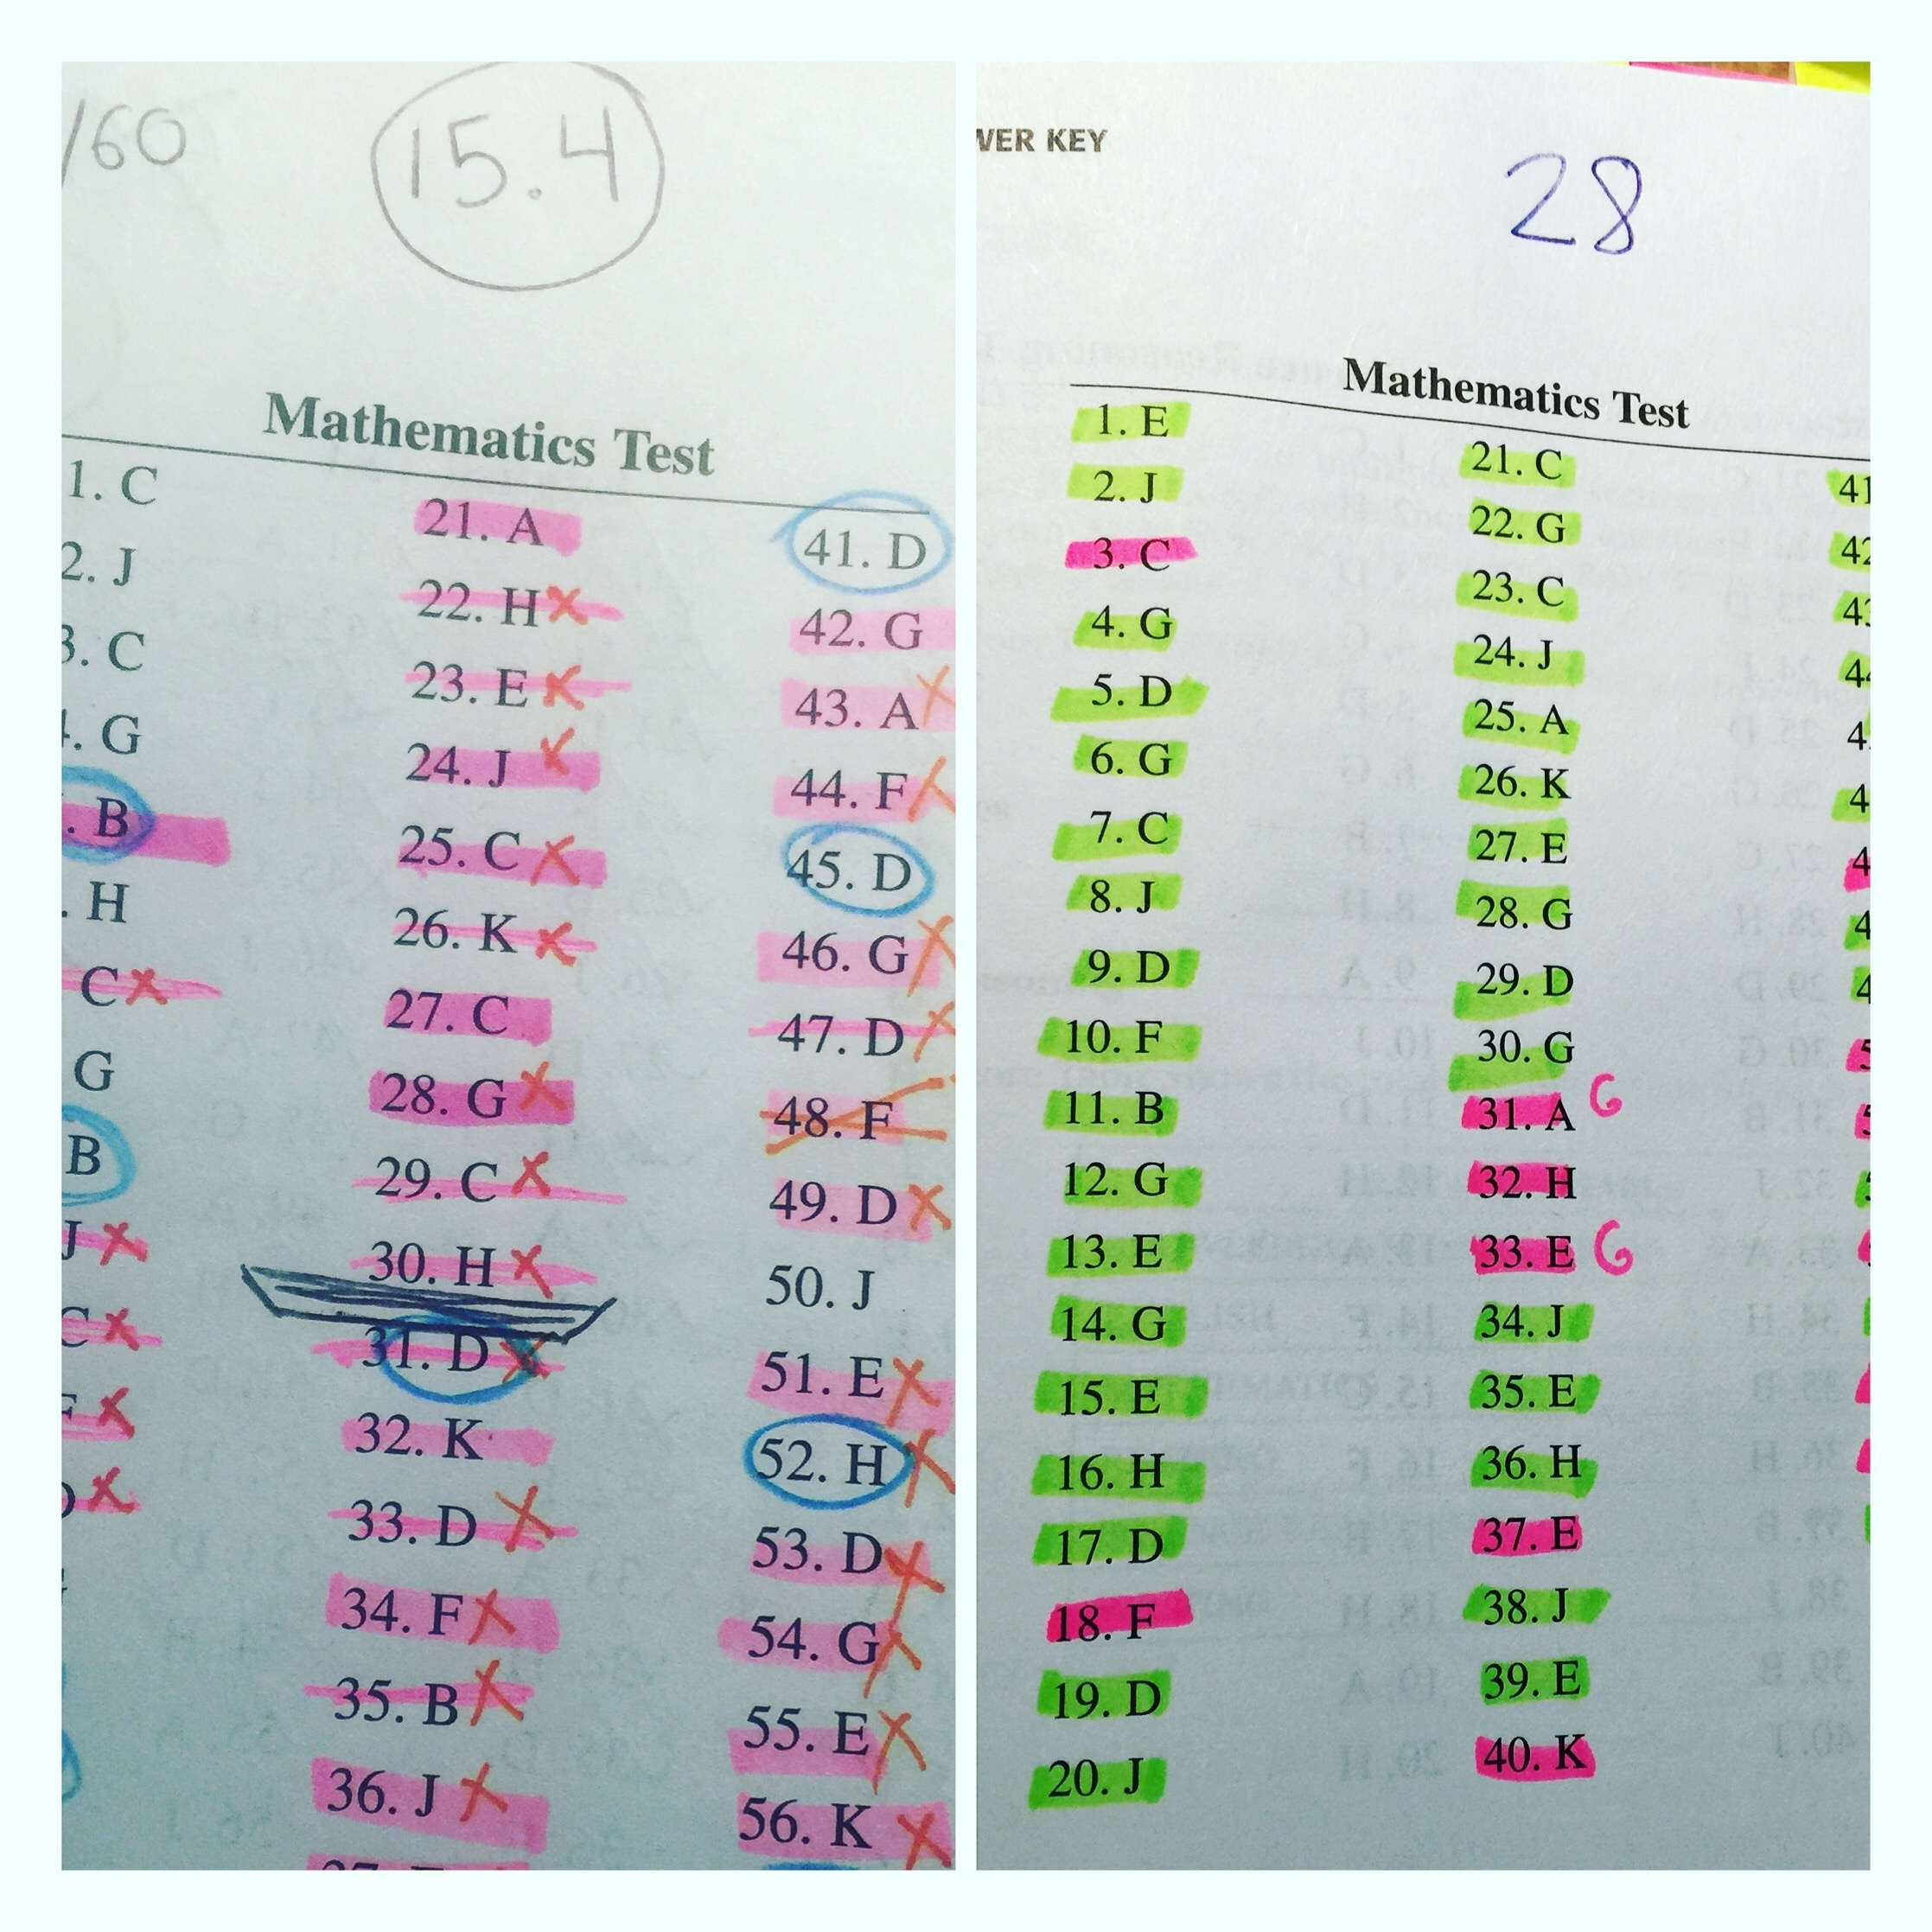 /60
15.4
Mathematics Test
1. C
2. J
3. C
. G
. B
. H
C X
G
B
J X
C X
X
X
21. A
22. H X
23. E X
24. J X
25. C X
26. K X
27. C
28. G X
29. C X
30. H X
31. D X
32. K
33. D X
34. F X
35. B X
36. J X
41. D
42. G
43. A X
44. F X
45. D
46. G X
47. D X
48. F
49. D X
50. J
51. E X
52. H X
53. D X
54. G X
55. E X
56. K X
WER KEY
28
Mathematics Test
1. E
2. J
3. C
4. G
5. D
6. G
7. C
8. J
9. D
10. F
11. B
12. G
13. E
14. G
15. E
16. H
17. D
18. F
19. D
20. J
21. C
22. G
23. C
24. J
25. A
26. K
27. E
28. G
29. D
30. G
31. A G
32. H
33. E G
34. J
35. E
36. H
37. E
38. J
39. E
40. K
41
42
43
44
4
4
4
4
4
5
5